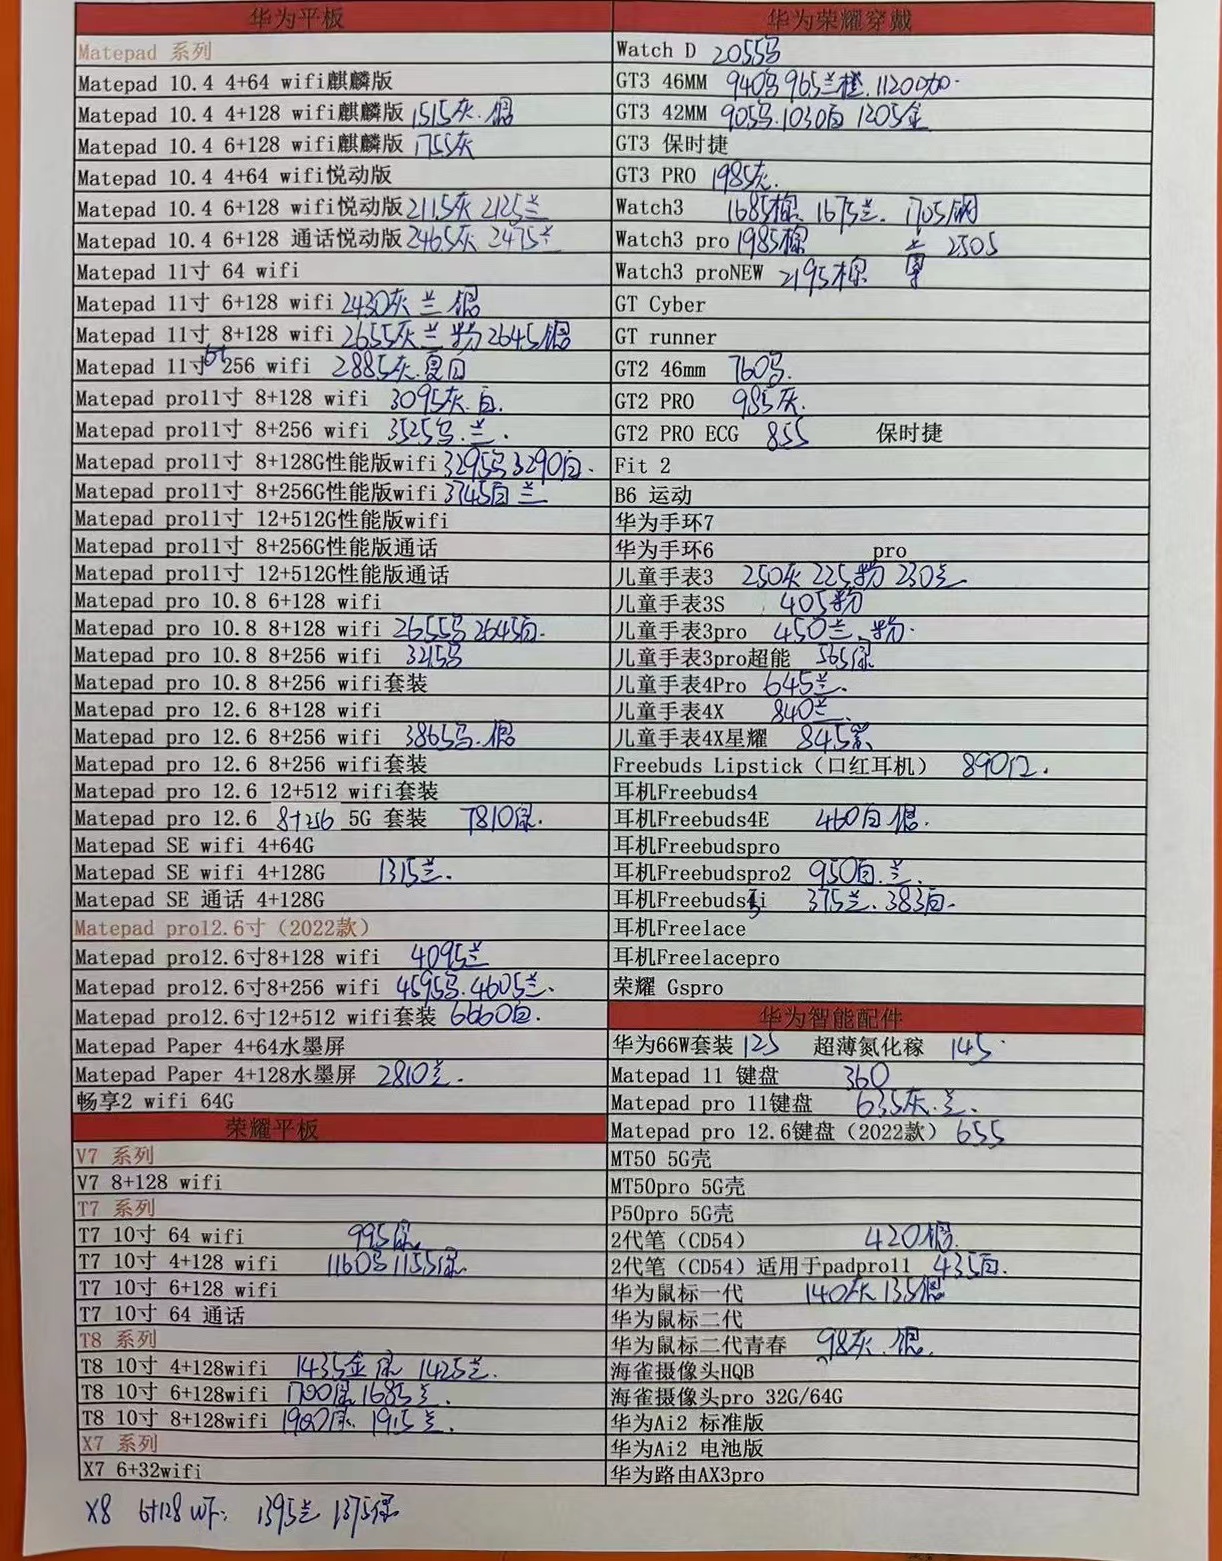 华为平板
Matepad 系列
Matepad 10.4 4+64 wifi麒麟版
Matepad 10.4 4+128 wifi麒麟版 1515灰.银
Matepad 10.4 6+128 wifi麒麟版 1755灰
Matepad 10.4 4+64 wifi悦动版
Matepad 10.4 6+128 wifi悦动版 2115灰 2125兰
Matepad 10.4 6+128 通话悦动版 2465灰 2475兰
Matepad 11寸 64 wifi
Matepad 11寸 6+128 wifi 2430灰 兰 银
Matepad 11寸 8+128 wifi 2655灰 兰 粉 2645银
Matepad 11寸 6+ 256 wifi 2885灰.
Matepad pro11寸 8+128 wifi 3095灰.白.
Matepad pro11寸 8+256 wifi 3525 .兰.
Matepad pro11寸 8+128G性能版wifi 3295 3290白.
Matepad pro11寸 8+256G性能版wifi 3745白 兰
Matepad pro11寸 12+512G性能版wifi
Matepad pro11寸 8+256G性能版通话
Matepad pro11寸 12+512G性能版通话
Matepad pro 10.8 6+128 wifi
Matepad pro 10.8 8+128 wifi 2655 2645白.
Matepad pro 10.8 8+256 wifi 3215
Matepad pro 10.8 8+256 wifi套装
Matepad pro 12.6 8+128 wifi
Matepad pro 12.6 8+256 wifi 3865 .银
Matepad pro 12.6 8+256 wifi套装
Matepad pro 12.6 12+512 wifi套装
Matepad pro 12.6 8+256 5G 套装 7810
Matepad SE wifi 4+64G
Matepad SE wifi 4+128G 1315兰.
Matepad SE 通话 4+128G
Matepad pro12.6寸（2022款）
Matepad pro12.6寸8+128 wifi 4095兰
Matepad pro12.6寸8+256 wifi 4595 .4605兰.
Matepad pro12.6寸12+512 wifi套装 6660白.
Matepad Paper 4+64水墨屏
Matepad Paper 4+128水墨屏 2810兰.
畅享2 wifi 64G
荣耀平板
V7 系列
V7 8+128 wifi
T7 系列
T7 10寸 64 wifi 995
T7 10寸 4+128 wifi 1160 1155
T7 10寸 6+128 wifi
T7 10寸 64 通话
T8 系列
T8 10寸 4+128wifi 1435金 1425兰.
T8 10寸 6+128wifi 1700 1685兰.
T8 10寸 8+128wifi 1915兰.
X7 系列
X7 6+32wifi
X8 6+128 1395兰 1375
华为荣耀穿戴
Watch D 2055
GT3 46MM 940 965兰橙 1120
GT3 42MM 905 .1030白 1205金
GT3 保时捷
GT3 PRO 1985灰.
Watch3 1685棕 1675兰. 1705钢
Watch3 pro 1985棕 2505
Watch3 proNEW 2195棕
GT Cyber
GT runner
GT2 46mm 760
GT2 PRO 985灰.
GT2 PRO ECG 855 保时捷
Fit 2
B6 运动
华为手环7
华为手环6 pro
儿童手表3 250灰 225粉 230兰
儿童手表3S 405粉
儿童手表3pro 450兰.粉.
儿童手表3pro超能 565
儿童手表4Pro 645兰.
儿童手表4X 840兰.
儿童手表4X星耀 845紫
Freebuds Lipstick（口红耳机） 890
耳机Freebuds4
耳机Freebuds4E 460白 银.
耳机Freebudspro
耳机Freebudspro2 950白.兰.
耳机Freebuds i 375兰.383白.
耳机Freelace
耳机Freelacepro
荣耀 Gspro
华为智能配件
华为66W套装 125 超薄氮化稼 145
Matepad 11 键盘 360
Matepad pro 11键盘 635灰.兰.
Matepad pro 12.6键盘（2022款） 655
MT50 5G壳
MT50pro 5G壳
P50pro 5G壳
2代笔（CD54） 420银.
2代笔（CD54）适用于padpro11 435白.
华为鼠标一代 140灰 135银
华为鼠标二代
华为鼠标二代青春 98灰.银.
海雀摄像头HQB
海雀摄像头pro 32G/64G
华为Ai2 标准版
华为Ai2 电池版
华为路由AX3pro